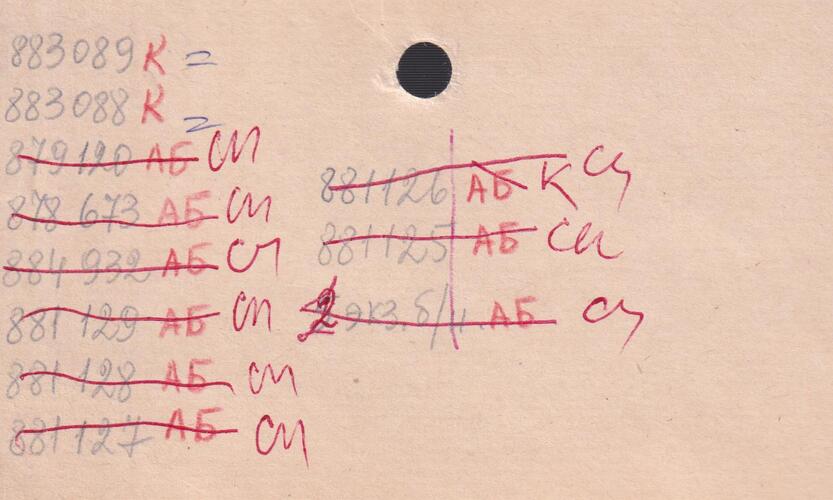 883089 К =
883088 К =
879120 АБ СП
878673 АБ СП
884932 АБ СП
881129 АБ СП
881128 АБ СП
881127 АБ СП
881126 АБ К
881125 АБ
2 экз. б/н. АБ